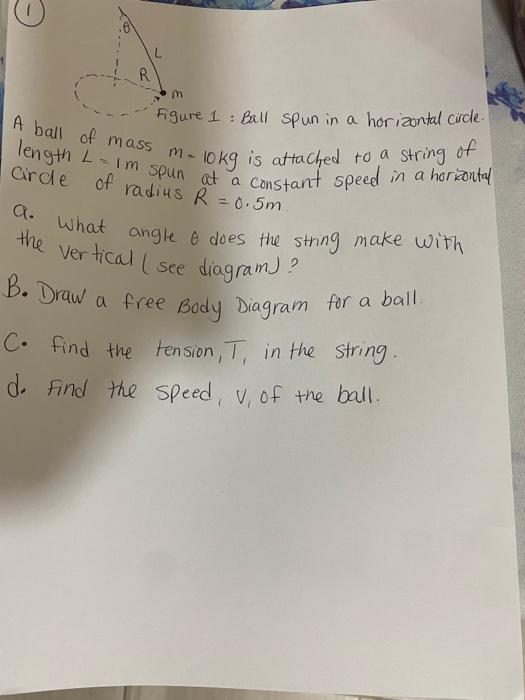 1
θ
L
R
m
Figure 1 : Ball spun in a horizontal circle.
A ball of mass m = 10kg is attached to a string of
length L = 1m spun at a constant speed in a horizontal
circle of radius R = 0.5m.
a. What angle θ does the string make with
the vertical (see diagram)?
B. Draw a free Body Diagram for a ball.
C. find the tension, T, in the string.
d. find the speed, v, of the ball.